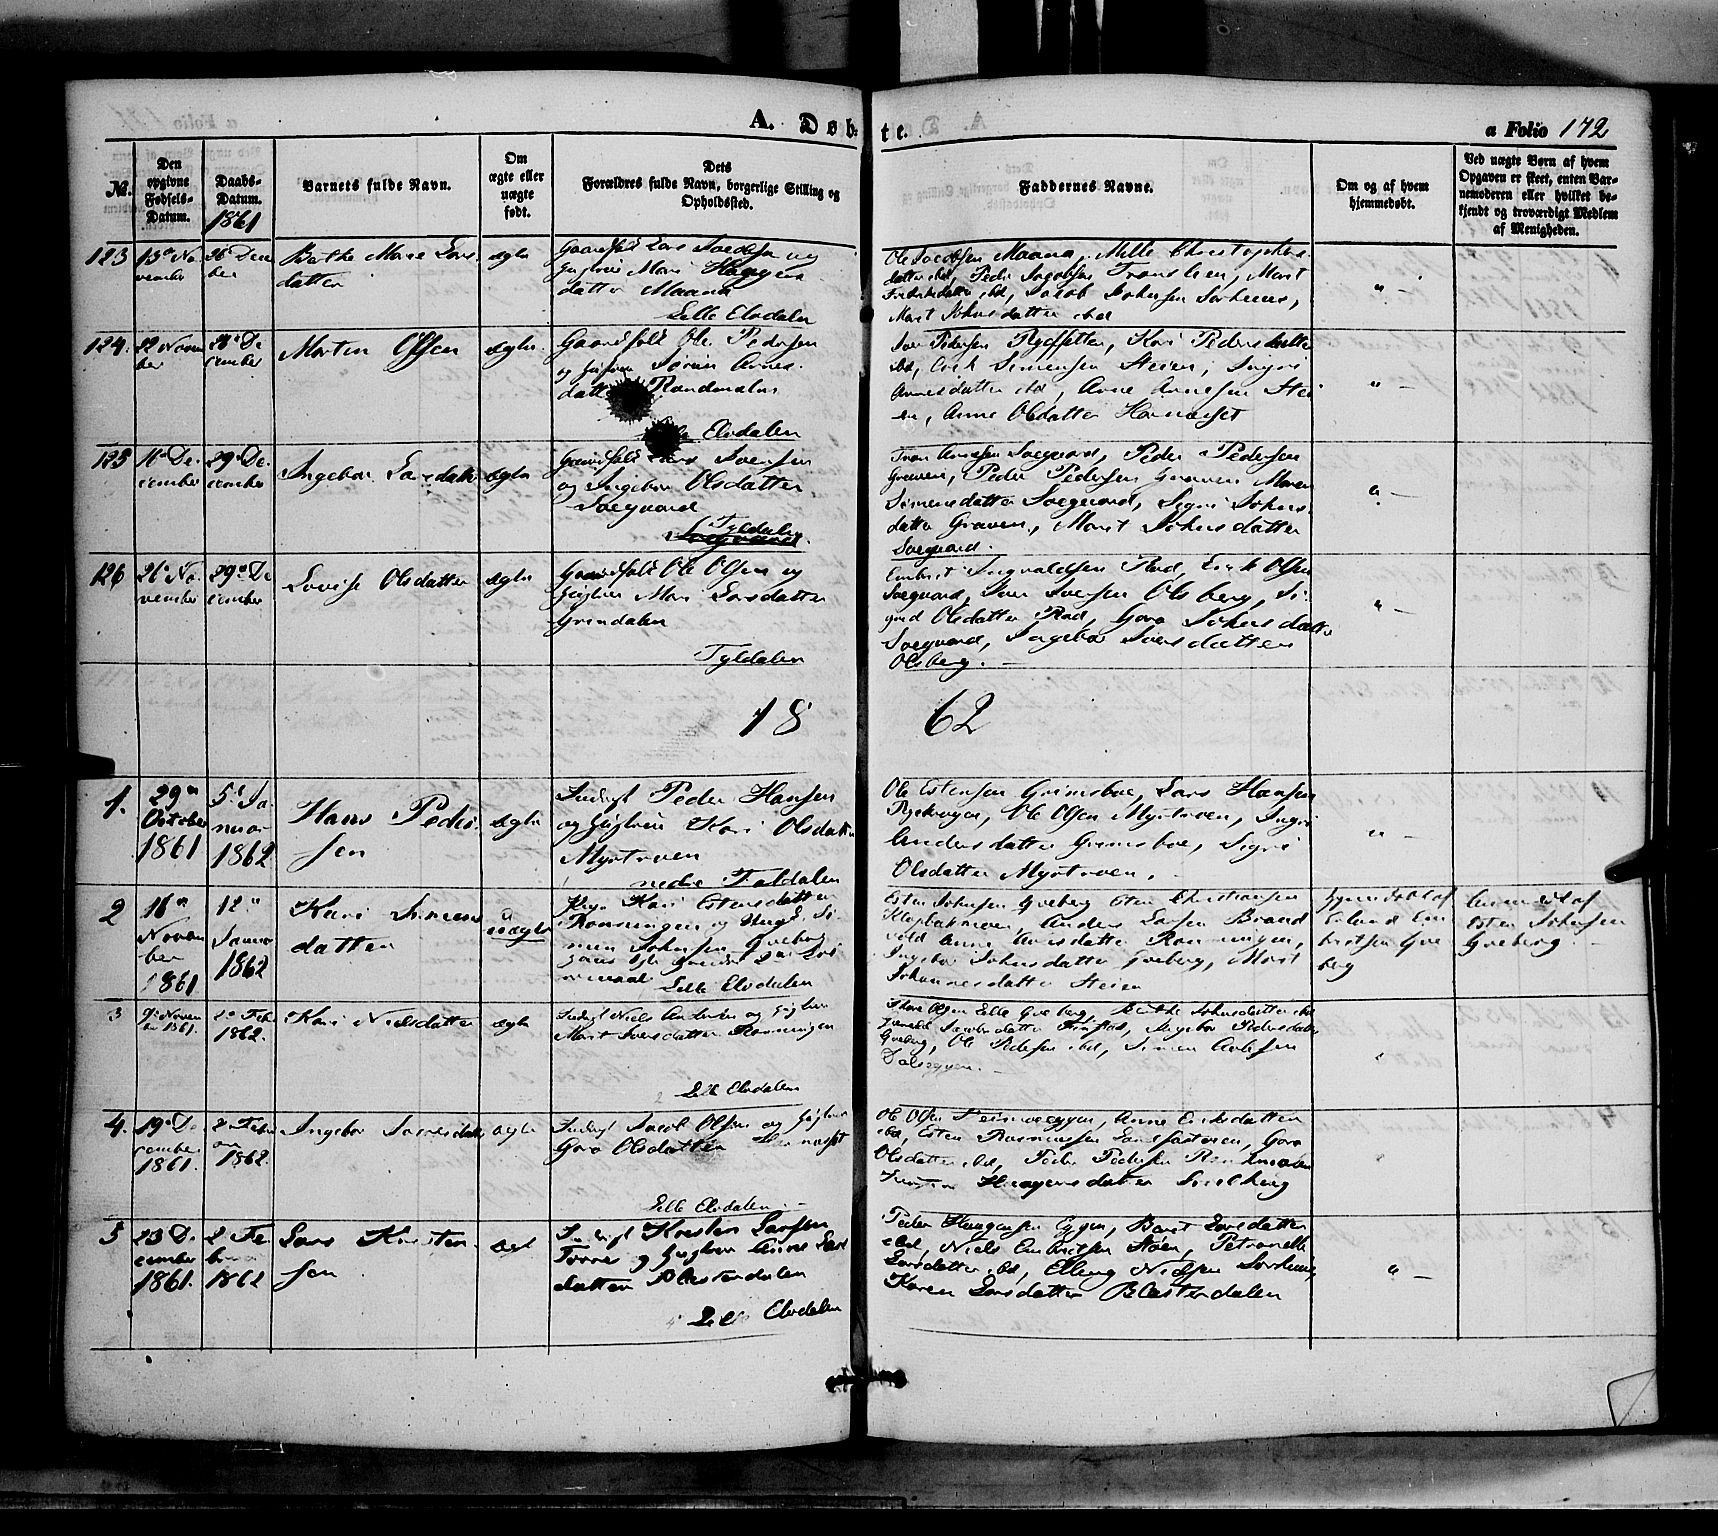 A. Døb-
te.
a Folio 172
No.
Den
opgivne
Fødsels-
Datum.
Daabs-
Datum.
1861
Barnets fulde Navn.
Om
ægte eller
uægte
født.
Dets
Forældres fulde Navn, borgerlige Stilling og
Opholdssted.
Faddernes Navne.
Om og af hvem
hjemmedøbt.
Ved uægte Børn af hvem
Opgaven er skeet, enten Bar-
nemoderen eller hvilket be-
kjendt og troværdigt Medlem
af Menigheden.
123
13de No
vember
26 Decem
ber
Berthe Marie Lars
datter
ægte
Gaardfolk Lars Jacobsen og
Hustru Mari Haagens
datter Maana
Lille Elvdalen
Ole Jacobsen Maana, Mille Christophers
datter ibd, Peder Jacobsen Tronslien, Marit
Frederiksdatter ibd, Jacob Johnsen Sorhuus,
Marit Johnsdatter ibd
" —
124.
22 Novem
ber
26de De
cember
Morten Olsen
ægte
Gaardfolk Ole Pedersen
og Hustru Sørine Arnes
datter Randmælen
Lille Elvdalen
Iver Pedersen, Kari Pedersdatter
ibd, Erik Simensen Steien, Ingri
Arnesdatter ibd, Arne Arnesen Stei
en, Anne Olsdatter Hornæset
" —
125
16de De
cember
29de De
cember
Ingebor Larsdatter
ægte
Gaardfolk Lars Iversen
og Ingebor Olsdatter
Soegaard
Tyldalen
Tron Arnesen Soegaard, Peder Pedersen
Graven, Peder Pedersen Graven Maren
Simensdatter Soegaard, Sigri Johns
datter Graven, Marit Johnsdatter
Soegaard.
" —
126
26de No
vember
29de De
cember
Lovise Olsdatter
ægte
Gaardfolk Ole Olsen og
Hustru Mari Larsdatter
Grindalen
Tyldalen
Embret Ingvaldsen Rød, Erik Olsen
Soegaard, Iver Iversen Olsberg, Si
grid Olsdatter Rød, Goro Johnsdatter
Soegaard, Ingebor Iversdatter
Olsberg. —
" —
18 62
1.
29de
October
1861
5te Ja
nuar
1862
Hans Peder
sen
ægte
Inderst Peder Hansen
og Hustru Kari Olsdatter
Myrtroen
nedre Foldalen
Ole Estensen Grimsboe, Lars Hansen
Ryehaugen, Ole Olsen Myrtroen, Ingri
Andersdatter Grimsboe, Sigri
Olsdatter Myrtroen.
" —
2
16de
Novem
ber
1861
12te
Januar
1862
Kari Simens
datter
uægte
Pige Kari Estensdatter
Rønningen og Ungk Si
men Johnsen Gveberg
Lille Elvdalen
Esten Johnsen Gveberg Esten Christiansen
Klopbakmoen, Anders Larsen Brand
vold Anne Arnesdatter Rønningen,
Ingebor Johnsdatter Gveberg, Marit
Johannesdatter Steien
Hjemmedøbt af
Erland Em
bretsen Gve
berg
Anmeldt af
Esten Johnsen
Gveberg.
3
9de Novem
ber 1861.
2de Feb
1862.
Kari Nielsdatter
ægte
Inderst Niels og Hustru
Marit Iversdatter Rønningen
Lille Elvdalen
Gveberg, Berthe Johnsdatter ibd
Gveberg, Ole Pedersen ibd, Simen
"
4.
19de De
cember
1861.
2den Febru
ar
1862.
Ingebor Jacobsdatter
ægte
Inderst Jacob Olsen og Hustru
Goro Olsdatter Hornæset
Lille Elvdalen
Ole Olsen, Anne Eriksdatter
ibd, Esten Rasmussen, Goro
Olsdatter ibd, Peder Pedersen Randmælen
Haagensdatter
"
5
23 De
cember
1861.
2 Fe
bruar
1862
Lars Kersten
sen
ægt
Inderst Kersten Larsen
og Hustru Anne Lars
datter Blæsterdalen
Lille Elvdalen
Peder Haagensen Eggen, Berit Larsdatter
ibd, Niels Embretsen Støen, Petronelle
Larsdatter ibd, Elling Nielsen Sorhuus,
Karen Larsdatter Blæsterdalen
" —